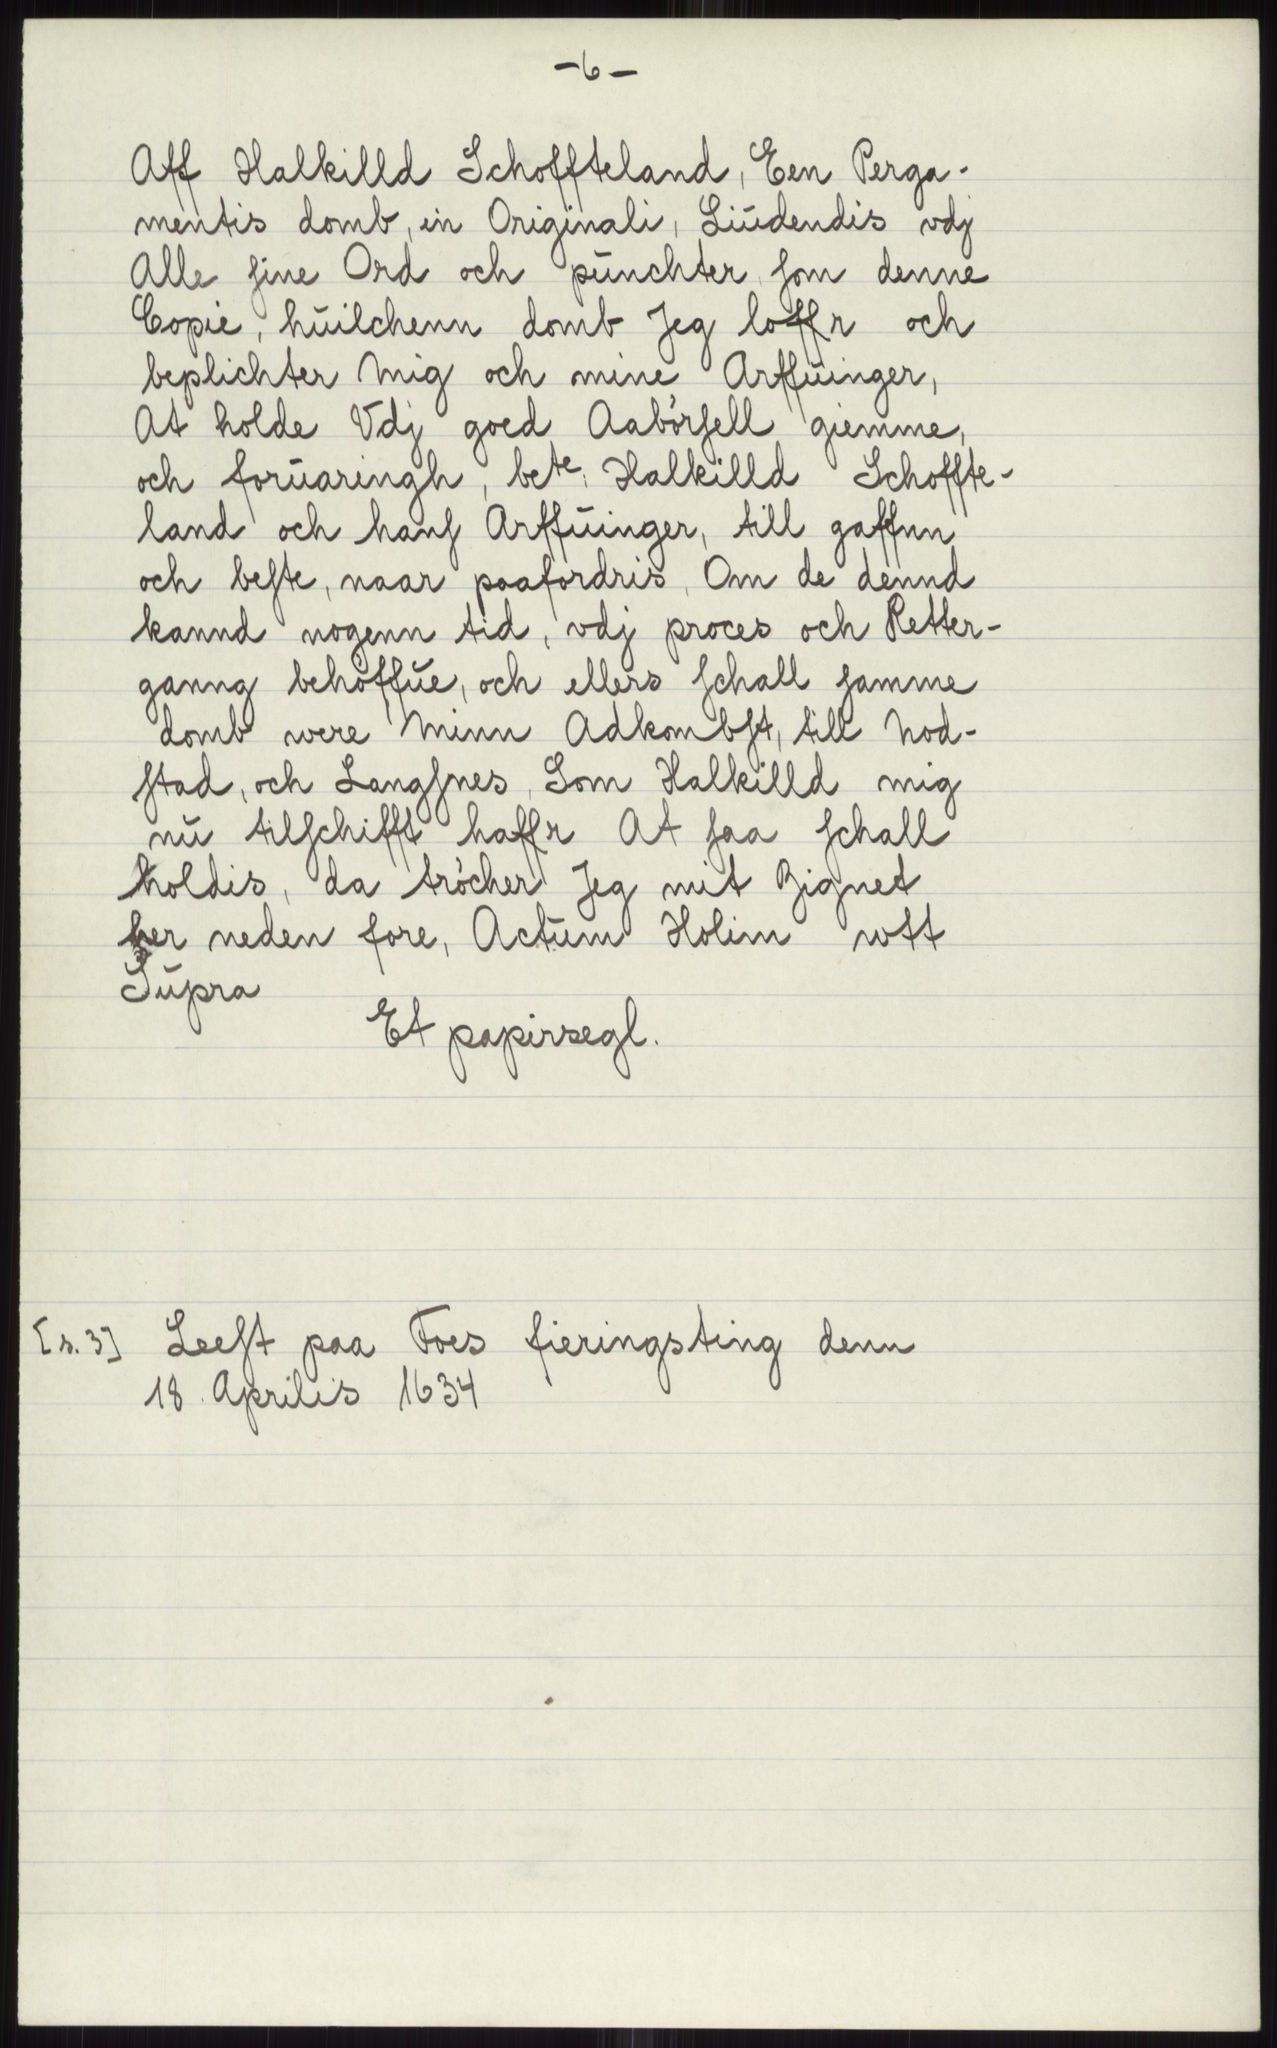 -6-
Aff Halkilld Schoffteland, Een Perga-
mentis domb, in Originali, Liŭdendis vdj
Alle ſine Ord och pŭnchter ſom denne
Copie, hŭilchenn domb Jeg loffr och
beplichter Mig och mine Arffŭinger,
At holde Vdj goed Aabörſell giemme,
och forŭaringh, bete: Halkilld Schoffte-
land och hanſ Arffŭinger, till gaffnn
och beſte, naar paafordris, Om de dennd
kannd nogenn tid, vdj proces och Retter-
ganng behöffŭe, och ellers ſchall ſamme
domb were Minn Adkombſt, till Nod-
ſtad, och Langſnes, Som Halkilld mig
nŭ tilſchifft haffr At ſaa ſchall
holdis, da tröcher Jeg mit Zignet
her neden fore, Actŭm Holim wtt
Sŭpra
Et papirsegl.
[s. 3] Leeſt paa Foes fieringsting denn
18. Aprilis 1634